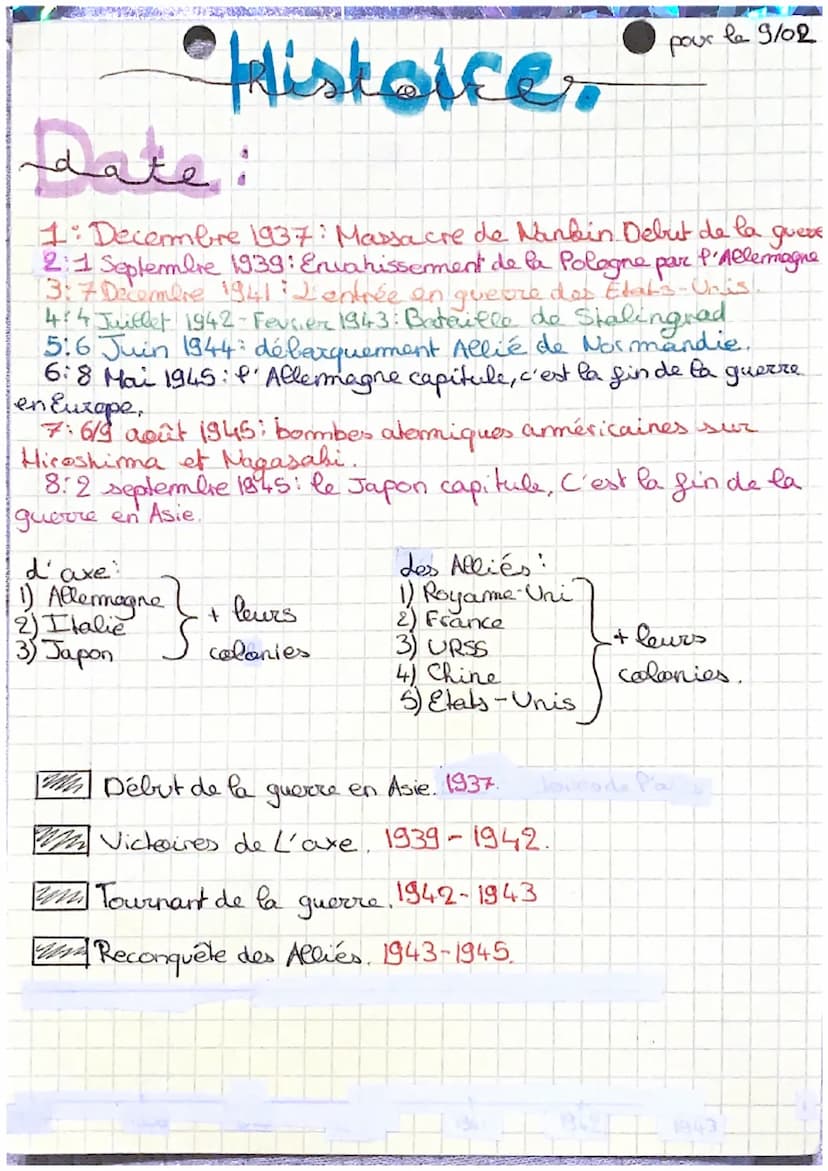 pour le 9/02
Histoire.
Date:
1: Decembre 1937: Massacre de Nankin. Debut de la guere
2: 1 Septembre 1939: Envahissement de la Pologne par l'Allemagne
3: 7 Décembre 1941: L'entrée en guerre des Etats-Unis.
4: 4 Juillet 1942-Fevrier 1943: Bataille de Stalingrad
5: 6 Juin 1944: débarquement Allié de Normandie.
6: 8 Mai 1945: l'Allemagne capitule, c'est la fin de la guerre
en Europe,
7: 6/9 août 1945: bombes atomiques américaines sur
Hiroshima et Nagasaki.
8: 2 septembre 1945: le Japon capitule, C'est la fin de la
guerre en Asie.
d'axe:
1) Allemagne
2) Italie
3) Japon
+ leurs
colonies
des Alliés:
1) Royame-Uni
2) France
3) URSS
4) Chine
5) Etats-Unis
+ leurs
colonies.
Début de la guerre en Asie. 1937.
Victoires de L'axe. 1939-1942.
Tournant de la guerre. 1942-1943
Reconquête des Alliés. 1943-1945.
1942 1943